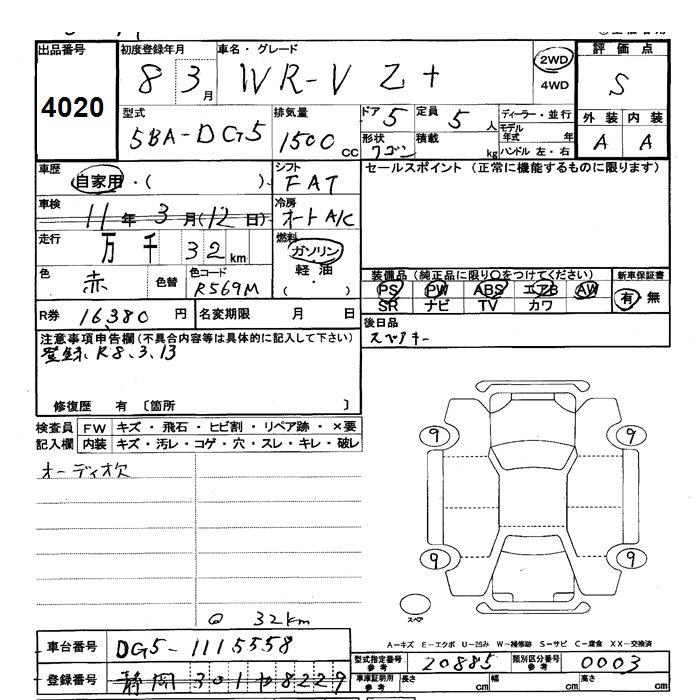 出品番号 初度登録年月 車名・グレード 評価点
4020 8 3月 WR-V Z+ 2WD 4WD S
型式 排気量 ドア 5 定員 5人 ディーラー・並行 外装 内装
5BA-DG5 1500cc 形状 ワゴン 積載 kg モデル年式 年 ハンドル 左・右 A A
車歴 自家用・( ) シフト FAT セールスポイント (正常に機能するものに限ります)
車検 11年3月(12日) 冷房 オートA/C
走行 万千32km 燃料 ガソリン 軽油・( )
色 赤 色替 色コード R569M 装備品(純正品に限り○をつけてください) 新車保証書
PS PW ABS エアB AW 有・無
SR ナビ TV カワ
R券 16,380円 名変期限 月 日 後日品
注意事項申告欄(不具合内容等は具体的に記入して下さい) スペアキー
登録、R8.3.13
修復歴 有 〔箇所 〕
検査員 FW キズ・飛石・ヒビ割・リペア跡・×要
記入欄 内装 キズ・汚レ・コゲ・穴・スレ・キレ・破レ
9 9
オーディオ欠
9 9
スペア
@ 32km
A-キズ E-エクボ U-凹み W-補修跡 S-サビ C-腐食 XX-交換済
車台番号 DG5-1115558
型式指定番号 参考 20885 類別区分番号 参考 0003
登録番号 静岡 301 や 8229
車庫証明用 参考 長さ cm 幅 cm 高さ cm